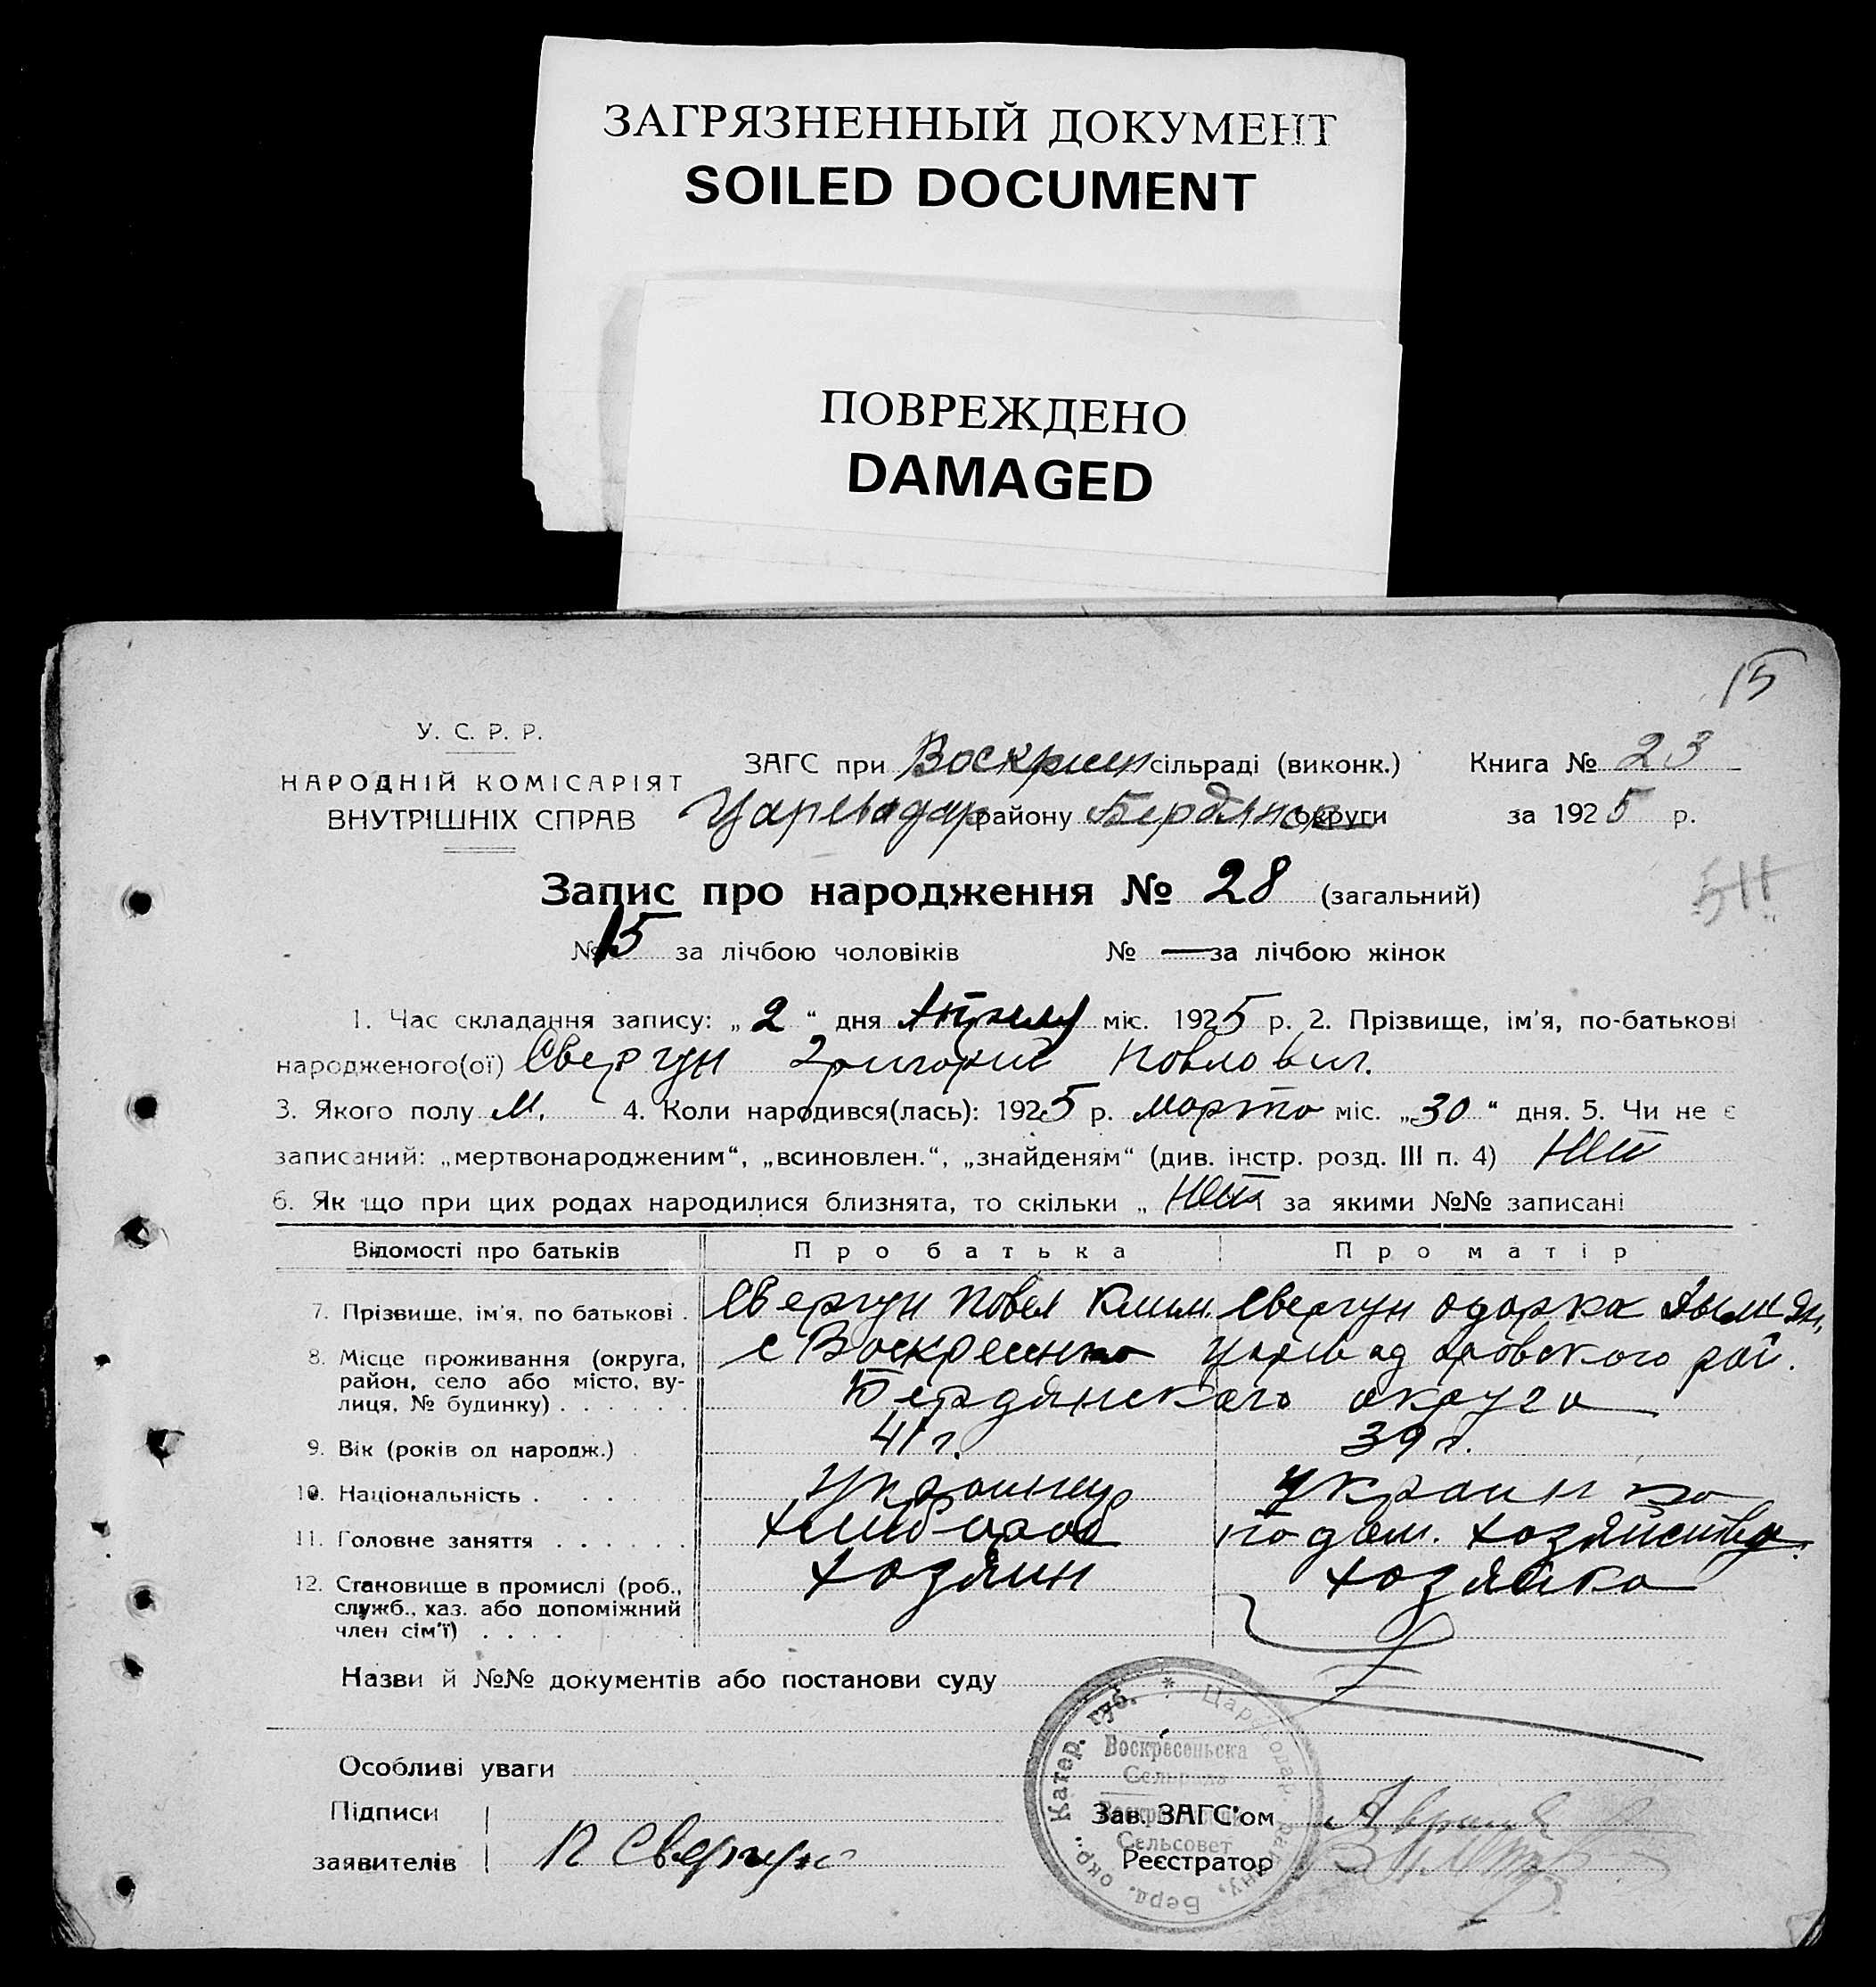 ЗАГРЯЗНЕННЫЙ ДОКУМЕНТ
SOILED DOCUMENT
ПОВРЕЖДЕНО
DAMAGED
15
У. С. Р. Р.
НАРОДНІЙ КОМІСАРІЯТ
ВНУТРІШНІХ СПРАВ
ЗАГС при Воскрисен сільраді (виконк.) Книга № 23
Царевадар району Бердянск округи за 1925 р.
Запис про народження № 28 (загальний)
№ 15 за лічбою чоловіків № — за лічбою жінок
1. Час складання запису: „2“ дня Апреля міс. 1925 р. 2. Прізвище, ім'я, по-батькові
народженого(ої) Свергун Григорий Повлович.
3. Якого полу М. 4. Коли народився(лась): 1925 р. марта міс. „30“ дня. 5. Чи не є
записаний: „мертвонародженим“, „всиновлен.“, „знайденям“ (див. інстр. розд. III п. 4) Нет
6. Як що при цих родах народилися близнята, то скільки „ Нет за якими №№ записані
Відомості про батьків Про батька Про матір
7. Прізвище, ім'я, по батькові . Свергун Повел Клим. Свергун Одарка
8. Місце проживання (округа, район, село або місто, ву-лиця, № будинку) . . . . . . с Воскресенка Царевадаровского рай.
Бердянского округа
9. Вік (років од народж.) . 41 г. 39 г.
10. Національність . . . . . Украинец Украинка
11. Головне заняття . . . . . . Хлебороб по дом. хозяйству.
12. Становище в промислі (роб., служб., хаз. або допоміжний член сім'ї) . . . . Хозяин Хозяйка
Назви й №№ документів або постанови суду
Особливі уваги
Підписи
заявителів П Свергун
Зав. ЗАГС'ом
Реєстратор
Катер. губ. * Царуводар. району, Берд. окр.
Воскресеньска
Сельрада
Сельсовет